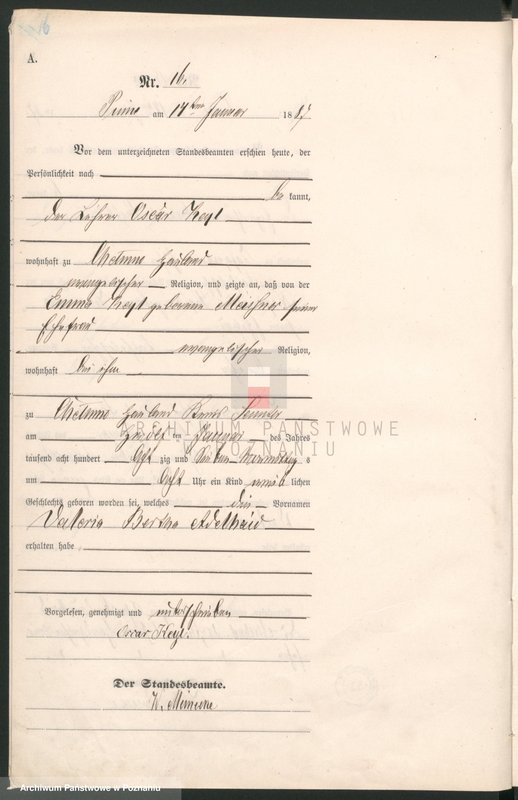 A.
Nr. 16.
Pinne am 14ten Januar 1887
Vor dem unterzeichneten Standesbeamten erschien heute, der
Persönlichkeit nach
be kannt,
der Lehrer Oscar Heyl
wohnhaft zu Chelmno Hauland
evangelischer Religion, und zeigte an, daß von der
Emma Heyl geborene seiner
Ehefrau
evangelischer Religion,
wohnhaft bei ihm
zu Chelmno Hauland Kreis Samter
am zwölften Januar des Jahres
tausend acht hundert acht zig und sieben Vormittags
um acht Uhr ein Kind weib lichen
Geschlechts geboren worden sei, welches die Vornamen
Valeria Bertha Adelhaid
erhalten habe
Vorgelesen, genehmigt und unterschrieben
Oscar Heyl.
Der Standesbeamte.
ARCHIWUM PAŃSTWOWE
W POZNANIU
Archiwum Państwowe w Poznaniu